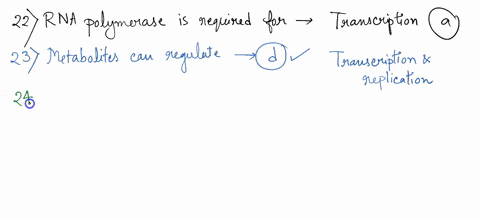 22) RNA polymerase is required for → Transcription (a)
23) Metabolites can regulate → (d) ✓ Transcription &
replication
24